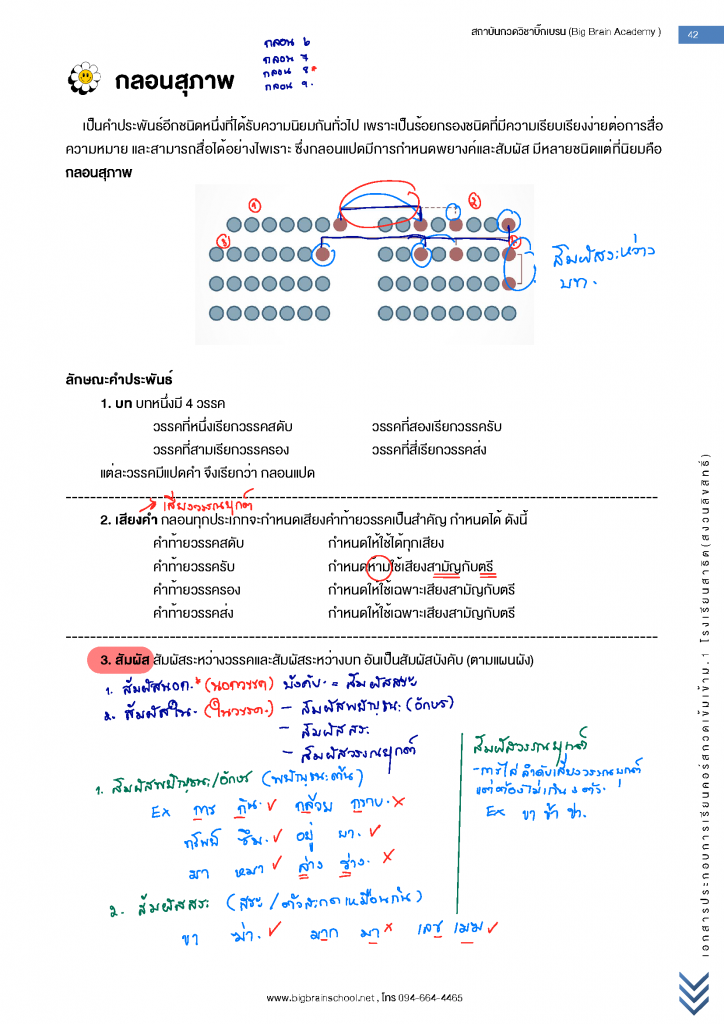 สถาบันกวดวิชาบิ๊กเบรน (Big Brain Academy )
42
กลอน ๖
กลอน ๗
กลอน ๘*
กลอน ๙.
กลอนสุภาพ
เป็นคำประพันธ์อีกชนิดหนึ่งที่ได้รับความนิยมกันทั่วไป เพราะเป็นร้อยกรองชนิดที่มีความเรียบเรียงง่ายต่อการสื่อ
ความหมาย และสามารถสื่อได้อย่างไพเราะ ซึ่งกลอนแปดมีการกำหนดพยางค์และสัมผัส มีหลายชนิดแต่ที่นิยมคือ
กลอนสุภาพ
สัมผัสระหว่าง
บท.
ลักษณะคำประพันธ์
1. บท บทหนึ่งมี 4 วรรค
วรรคที่หนึ่งเรียกวรรคสดับ วรรคที่สองเรียกวรรครับ
วรรคที่สามเรียกวรรครอง วรรคที่สี่เรียกวรรคส่ง
แต่ละวรรคมีแปดคำ จึงเรียกว่า กลอนแปด
เสียงวรรณยุกต์
2. เสียงคำ กลอนทุกประเภทจะกำหนดเสียงคำท้ายวรรคเป็นสำคัญ กำหนดได้ ดังนี้
คำท้ายวรรคสดับ กำหนดให้ใช้ได้ทุกเสียง
คำท้ายวรรครับ กำหนดห้ามใช้เสียงสามัญกับตรี
คำท้ายวรรครอง กำหนดให้ใช้เฉพาะเสียงสามัญกับตรี
คำท้ายวรรคส่ง กำหนดให้ใช้เฉพาะเสียงสามัญกับตรี
3. สัมผัส สัมผัสระหว่างวรรคและสัมผัสระหว่างบท อันเป็นสัมผัสบังคับ (ตามแผนผัง)
1. สัมผัสนอก* (นอกวรรค) บังคับ = สัมผัสสระ
2. สัมผัสใน. (ในวรรค.) - สัมผัสพยัญชนะ (อักษร)
- สัมผัสสระ
- สัมผัสวรรณยุกต์
1. สัมผัสพยัญชนะ/อักษร (พยัญชนะต้น)
Ex การ กัน. ✓ กล้วย กราบ. ✗
ทรัพย์ ซึม. ✓ อยู่ ยา. ✓
มา หมา ✓ ล่าง ร่าง. ✗
2. สัมผัสสระ (สระ / ตัวสะกดเหมือนกัน)
ขา ฆ่า. ✓ มาก มา ✗ เลข เมฆ ✓
สัมผัสวรรณยุกต์
-การไล่ลำดับเสียงวรรณยุกต์
แต่ต้องไม่เกิน
Ex ขา ข้า ข่า.
เอกสารประกอบการเรียนคอร์สกวดเข้มเข้าม.1 โรงเรียนสาธิต(สงวนลิขสิทธิ์)
www.bigbrainschool.net , โทร 094-664-4465